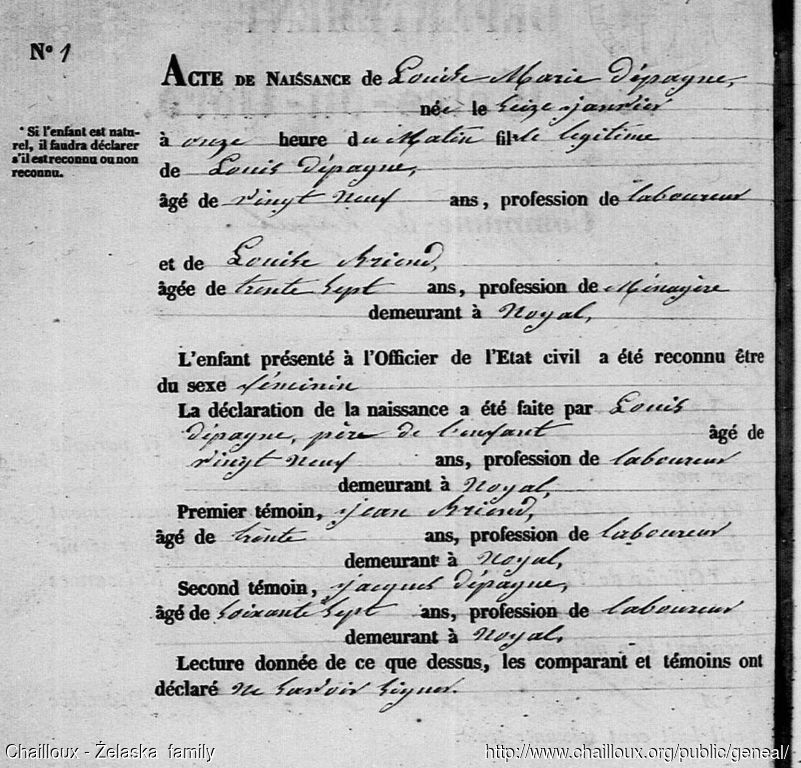 N° 1
ACTE DE NAISSANCE de Louise Marie dépagne,
née le seize janvier
à onze heure du Matin fille legitime
* Si l'enfant est natu-
rel, il faudra déclarer
s'il est reconnu ou non
reconnu.
de Louis dépagne,
âgé de vingt neuf ans, profession de laboureur
et de Louise Briend,
âgée de trente sept ans, profession de Ménagère
demeurant à Noyal,
L'enfant présenté à l'Officier de l'Etat civil a été reconnu être
du sexe féminin
La déclaration de la naissance a été faite par Louis
dépagne, père de l'enfant âgé de
vingt neuf ans, profession de laboureur
demeurant à Noyal,
Premier témoin, jean Briend,
âgé de trente ans, profession de laboureur
demeurant à Noyal,
Second témoin, jacques dépagne,
âgé de soixante sept ans, profession de laboureur
demeurant à Noyal,
Lecture donnée de ce que dessus, les comparant et témoins ont
déclaré ne savoir signer.
Chailloux - Żelaska family http://www.chailloux.org/public/geneal/